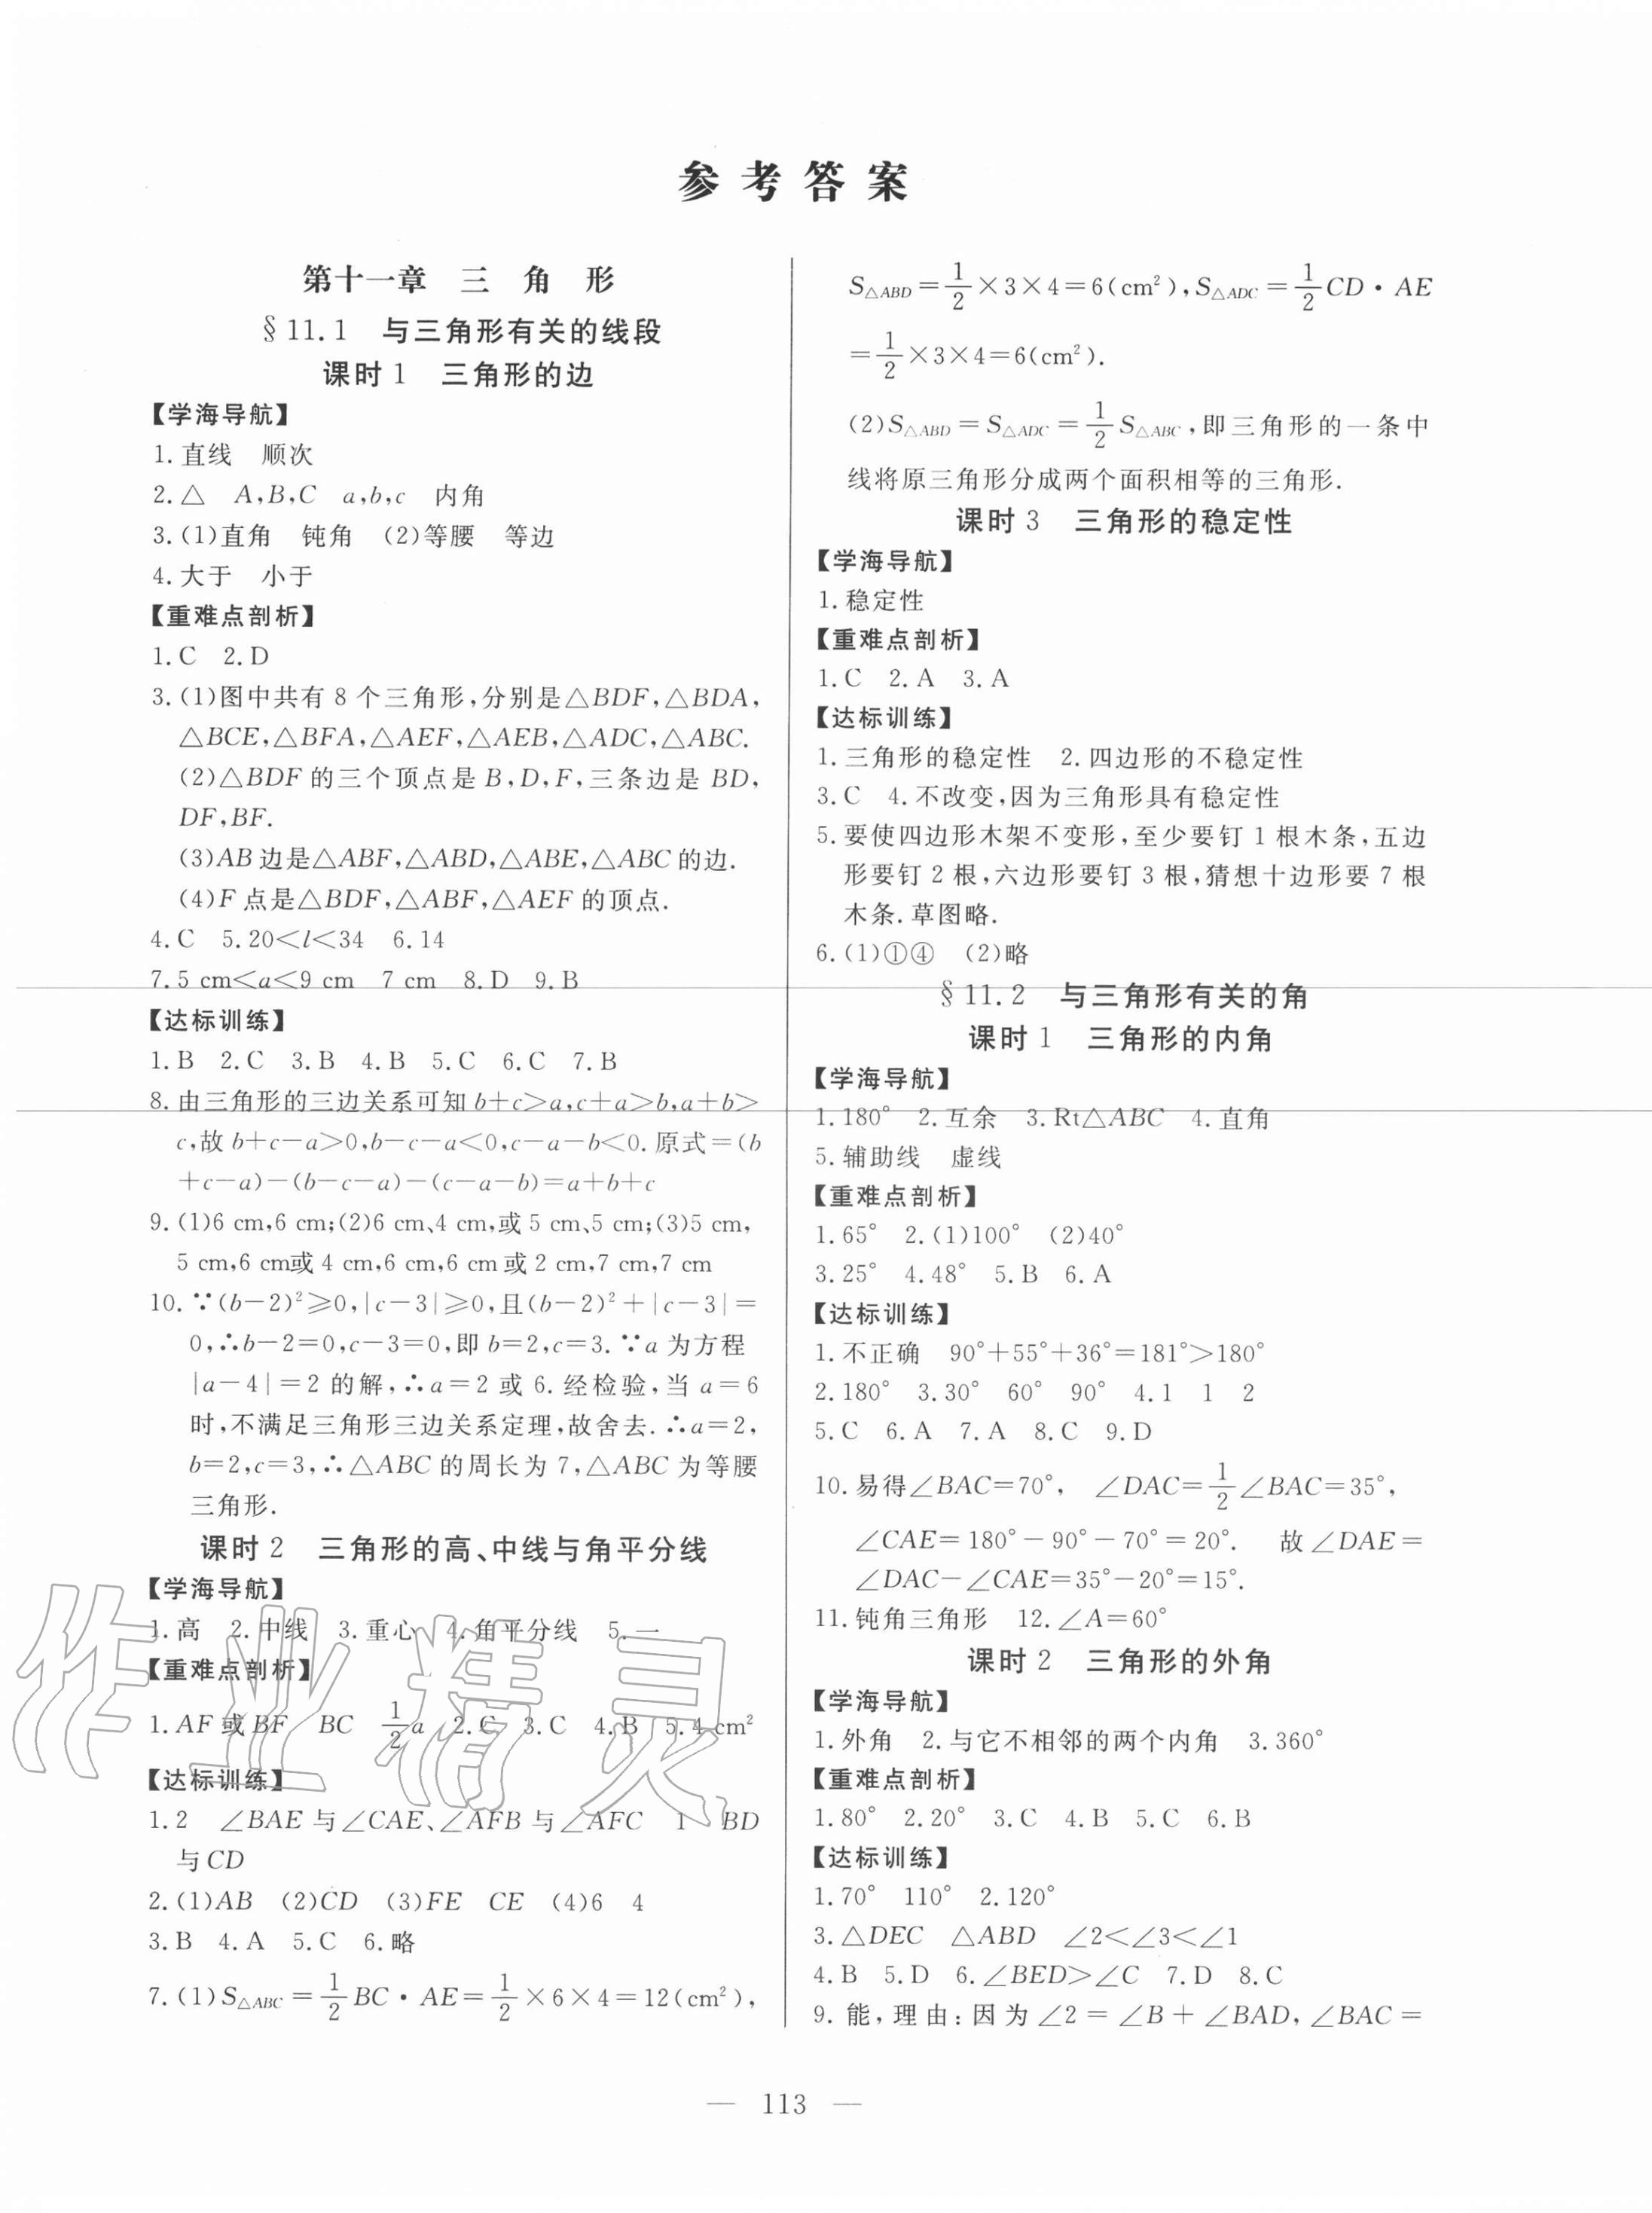 参考答案
第十一章 三 角 形
§11.1 与三角形有关的线段
课时1 三角形的边
【学海导航】
1.直线 顺次
2.△ A,B,C a,b,c 内角
3.(1)直角 钝角 (2)等腰 等边
4.大于 小于
【重难点剖析】
1.C 2.D
3.(1)图中共有8个三角形,分别是△BDF,△BDA,
△BCE,△BFA,△AEF,△AEB,△ADC,△ABC.
(2)△BDF的三个顶点是B,D,F,三条边是BD,
DF,BF.
(3)AB边是△ABF,△ABD,△ABE,△ABC的边.
(4)F点是△BDF,△ABF,△AEF的顶点.
4.C 5.20<l<34 6.14
7.5 cm<a<9 cm 7 cm 8.D 9.B
【达标训练】
1.B 2.C 3.B 4.B 5.C 6.C 7.B
8.由三角形的三边关系可知b+c>a,c+a>b,a+b>
c,故b+c-a>0,b-c-a<0,c-a-b<0.原式=(b
+c-a)-(b-c-a)-(c-a-b)=a+b+c
9.(1)6 cm,6 cm;(2)6 cm、4 cm,或5 cm、5 cm;(3)5 cm,
5 cm,6 cm或4 cm,6 cm,6 cm或2 cm,7 cm,7 cm
10.∵(b-2)²≥0,|c-3|≥0,且(b-2)²+|c-3|=
0,∴b-2=0,c-3=0,即b=2,c=3.∵a为方程
|a-4|=2的解,∴a=2或6.经检验,当a=6
时,不满足三角形三边关系定理,故舍去.∴a=2,
b=2,c=3,∴△ABC的周长为7,△ABC为等腰
三角形.
课时2 三角形的高、中线与角平分线
【学海导航】
1.高 2.中线 3.重心 4.角平分线 5.一
【重难点剖析】
1.AF或BF BC 1/2a 2.C 3.C 4.B 5.4 cm²
【达标训练】
1.2 ∠BAE与∠CAE、∠AFB与∠AFC 1 BD
与CD
2.(1)AB (2)CD (3)FE CE (4)6 4
3.B 4.A 5.C 6.略
7.(1)S△ABC=1/2BC·AE=1/2×6×4=12(cm²),
S△ABD=1/2×3×4=6(cm²),S△ADC=1/2CD·AE
=1/2×3×4=6(cm²).
(2)S△ABD=S△ADC=1/2S△ABC,即三角形的一条中
线将原三角形分成两个面积相等的三角形.
课时3 三角形的稳定性
【学海导航】
1.稳定性
【重难点剖析】
1.C 2.A 3.A
【达标训练】
1.三角形的稳定性 2.四边形的不稳定性
3.C 4.不改变,因为三角形具有稳定性
5.要使四边形木架不变形,至少要钉1根木条,五边
形要钉2根,六边形要钉3根,猜想十边形要7根
木条.草图略.
6.(1)①④ (2)略
§11.2 与三角形有关的角
课时1 三角形的内角
【学海导航】
1.180° 2.互余 3.Rt△ABC 4.直角
5.辅助线 虚线
【重难点剖析】
1.65° 2.(1)100° (2)40°
3.25° 4.48° 5.B 6.A
【达标训练】
1.不正确 90°+55°+36°=181°>180°
2.180° 3.30° 60° 90° 4.1 1 2
5.C 6.A 7.A 8.C 9.D
10.易得∠BAC=70°, ∠DAC=1/2∠BAC=35°,
∠CAE=180°-90°-70°=20°. 故∠DAE=
∠DAC-∠CAE=35°-20°=15°.
11.钝角三角形 12.∠A=60°
课时2 三角形的外角
【学海导航】
1.外角 2.与它不相邻的两个内角 3.360°
【重难点剖析】
1.80° 2.20° 3.C 4.B 5.C 6.B
【达标训练】
1.70° 110° 2.120°
3.△DEC △ABD ∠2<∠3<∠1
4.B 5.D 6.∠BED>∠C 7.D 8.C
9.能,理由:因为∠2=∠B+∠BAD,∠BAC=
— 113 —
作业精灵